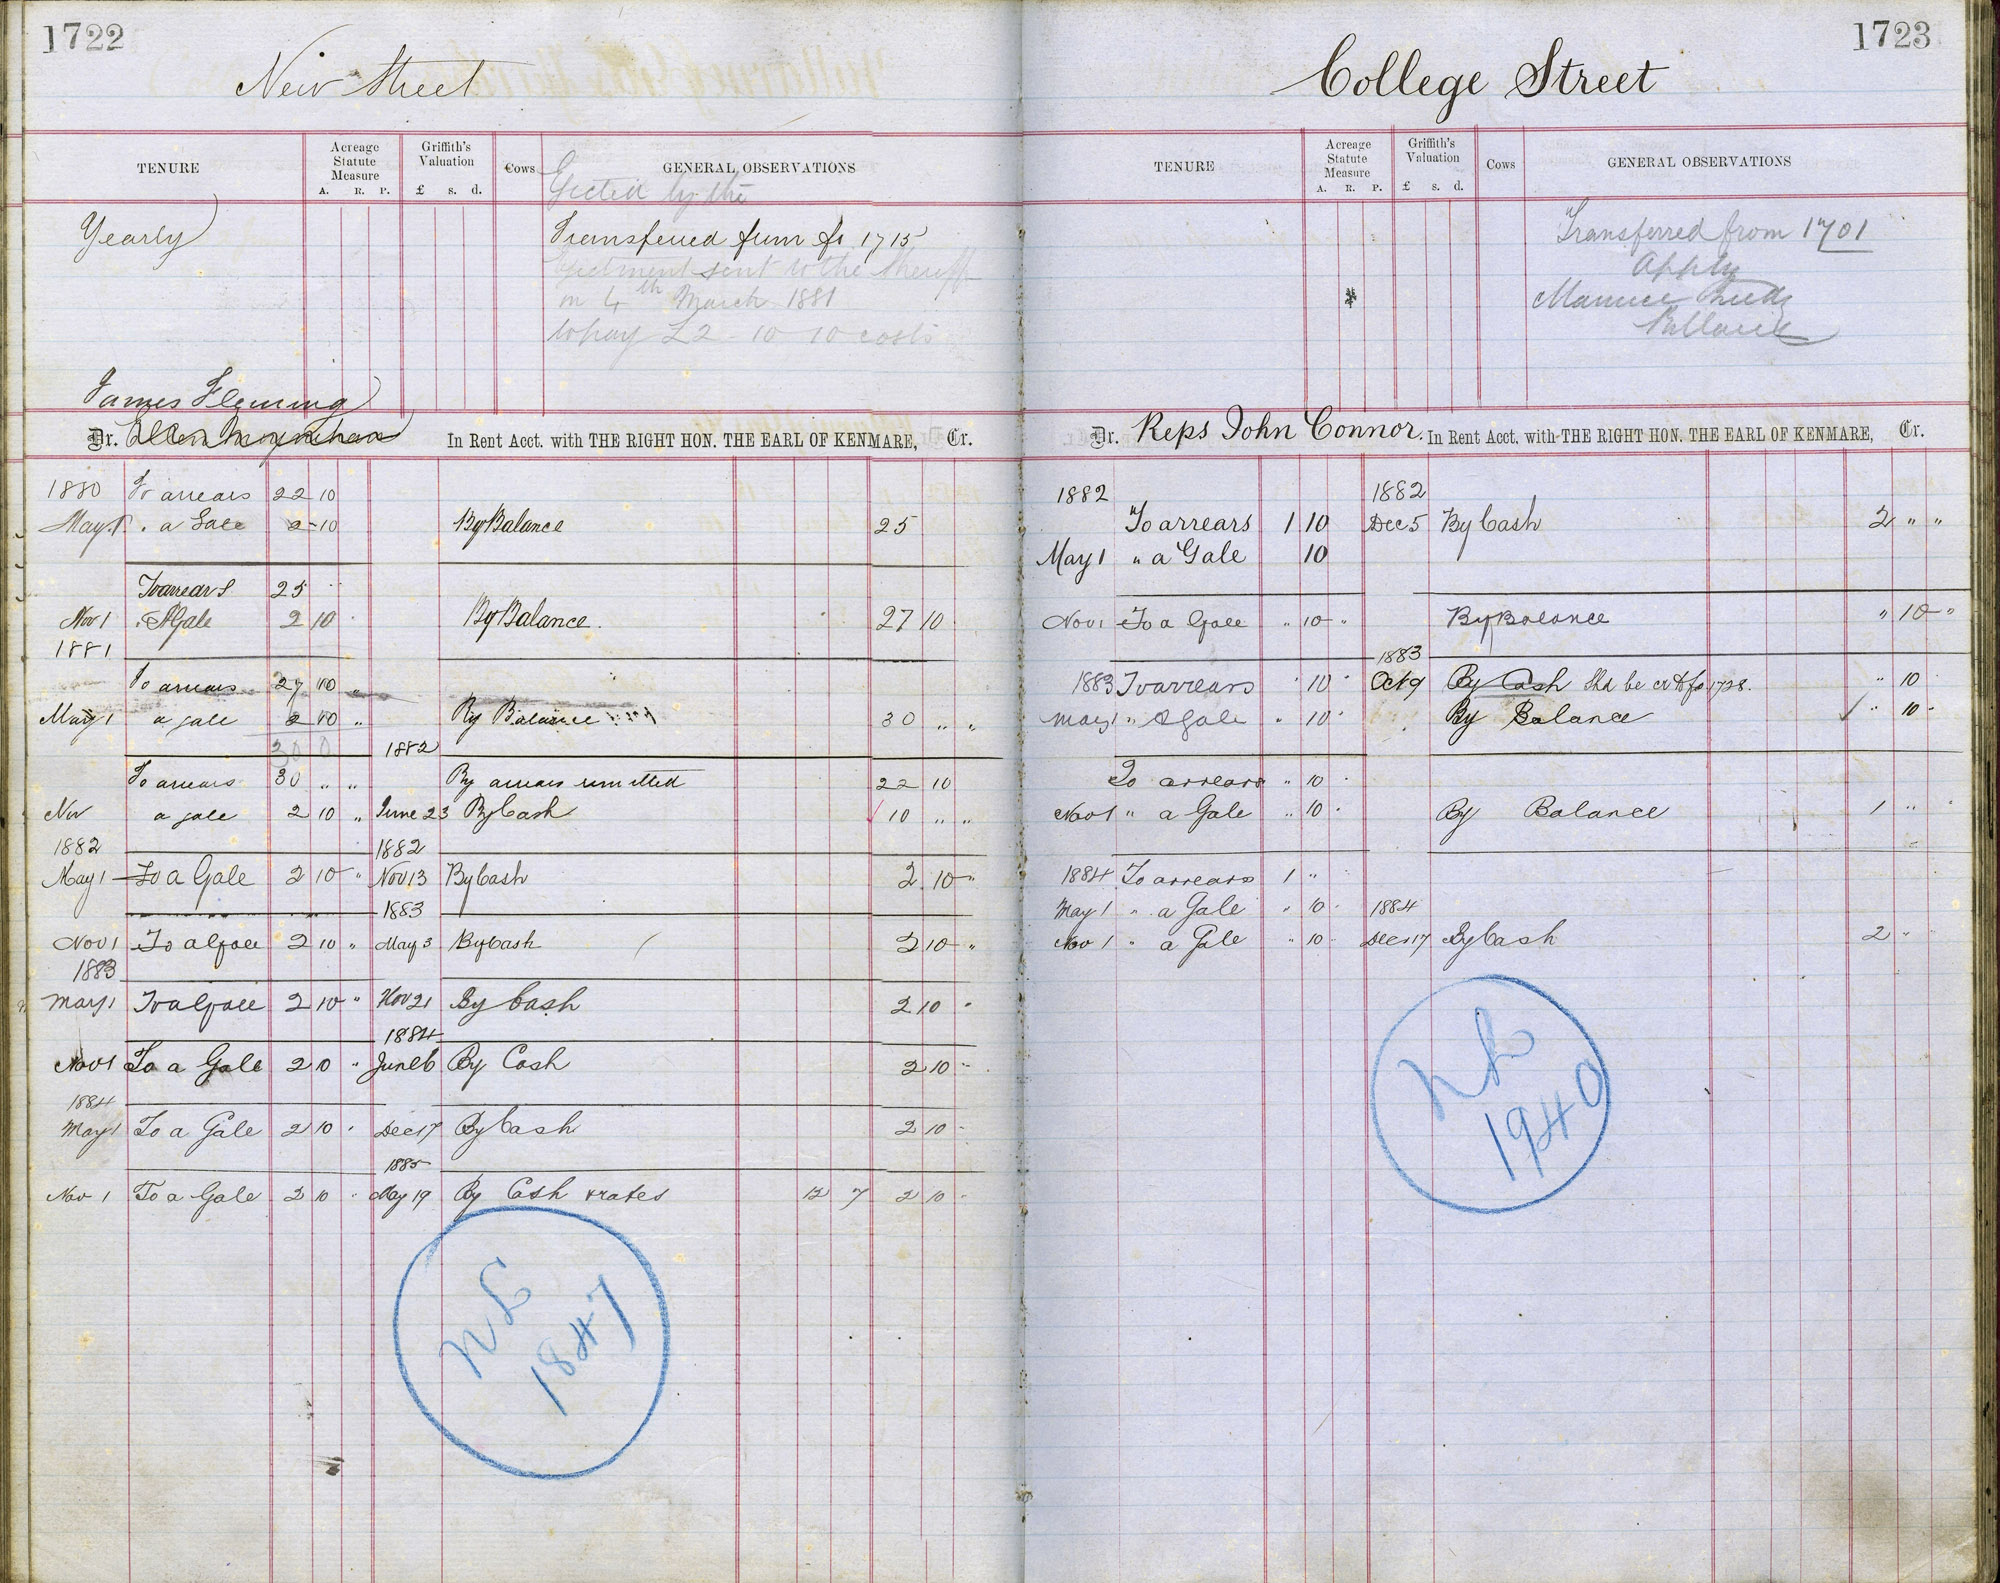 1722
New Street
TENURE
Acreage Statute Measure
A. R. P.
Griffith's Valuation
£ s. d.
Cows
GENERAL OBSERVATIONS
Ejected by the
Yearly
Transferred from fo 1715
Ejectment sent to the Sheriff
on 4th March 1881
to pay £2-10-10 costs
James Fleming
Dr. Ellen Moynihan In Rent Acct. with THE RIGHT HON. THE EARL OF KENMARE, Cr.
1880 To arrears 22 10
May 1 " a Gale 2-10 By Balance 25
To arrears 25 " "
Nov 1 " A Gale 2 10 " By Balance 27 10
1881
To arrears 27 10 "
May 1 a gale 2 10 " By Balance 30 " "
30 0 1882
To arrears 30 " " By arrears remitted 22 10
Nov a gale 2 10 " June 23 By Cash 10 " "
1882 1882
May 1 To a Gale 2 10 " Nov 13 By Cash 2 10 "
1883
Nov 1 To a Gale 2 10 " May 3 By Cash 2 10 "
1883
May 1 To a Gale 2 10 " Nov 21 By Cash 2 10 "
1884
Nov 1 To a Gale 2 10 " June 6 By Cash 2 10 "
1884
May 1 To a Gale 2 10 " Dec 17 By Cash 2 10 "
1885
Nov 1 To a Gale 2 10 " May 19 By Cash & rates 12 7 2 10 "
NL
1847
1723
College Street
TENURE
Acreage Statute Measure
A. R. P.
Griffith's Valuation
£ s. d.
Cows
GENERAL OBSERVATIONS
Transferred from 1701
Apply
Maurice
Dr. Reps John Connor. In Rent Acct. with THE RIGHT HON. THE EARL OF KENMARE, Cr.
1882 1882
To arrears 1 10 Dec 5 By Cash 2 " "
May 1 " a Gale 10
Nov 1 To a Gale " 10 " By Balance " 10 "
1883
1883 To arrears " 10 " Oct 9 By Cash Shd be cr to fo 1728. " 10 "
May 1 " A Gale " 10 " By Balance " 10 "
To arrears " 10 "
Nov 1 " a Gale " 10 " By Balance 1 " "
1884 To arrears 1 "
May 1 " a Gale " 10 " 1884
Nov 1 " a Gale " 10 " Dec 17 By Cash 2 "
NL
1940